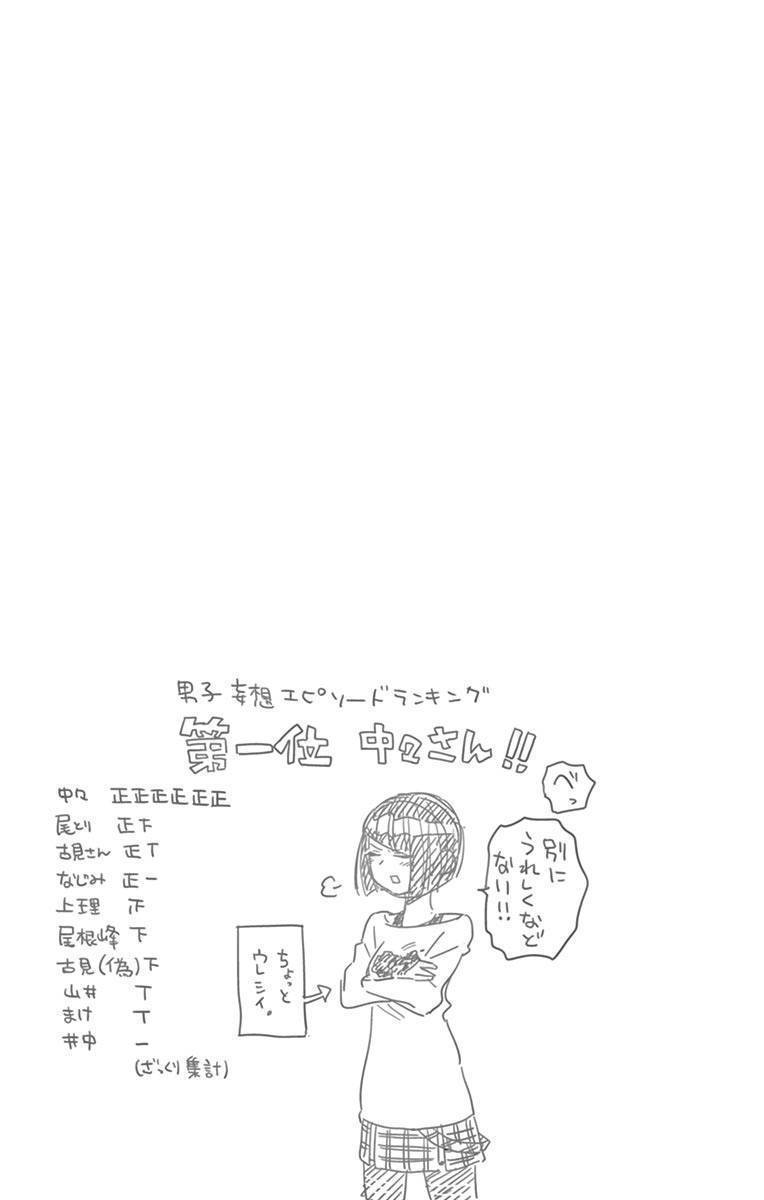 男子妄想エピソードランキング
第一位 中々さん!!
べっ
別に
うれしくなど
ない!!
中々 正正正正正正
尾とり 正下
古見さん 正丅
なじみ 正一
上理 下
尾根峰 下
古見(偽) 下
山井 丅
まけ 丅
井中 一
(ざっくり集計)
ちょっと
ウレシイ。